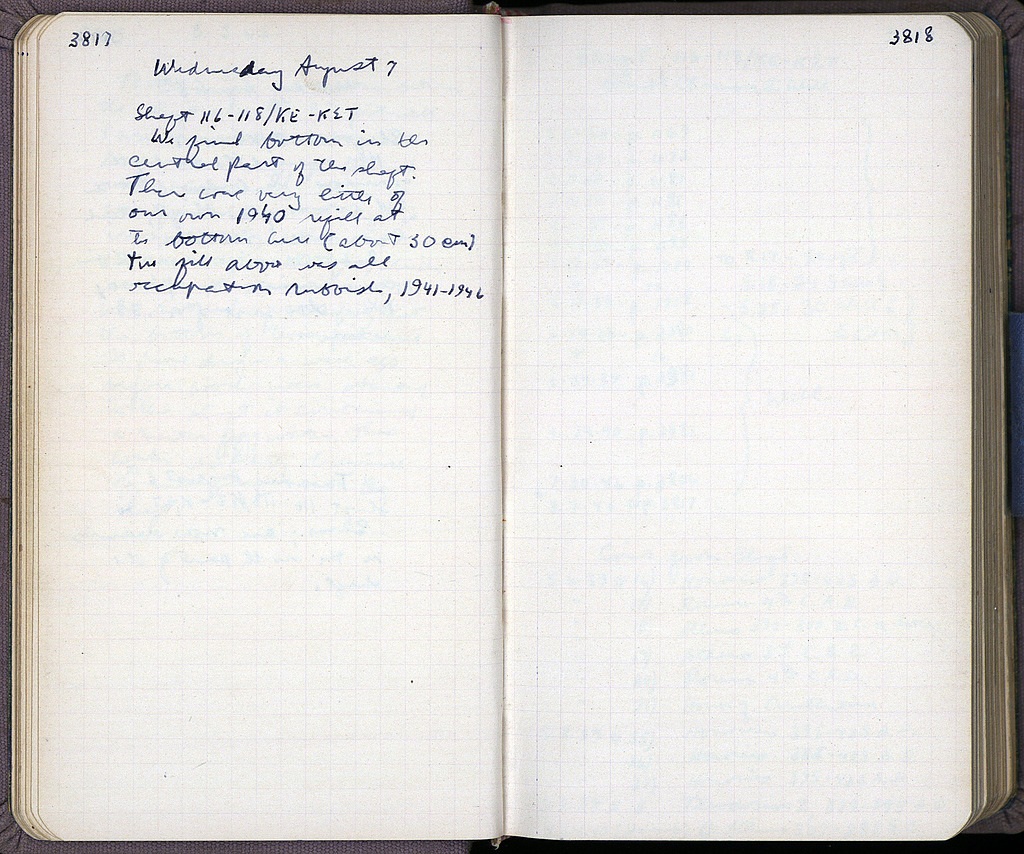 3817
3818
Wednesday August 7
Shaft 116-118/KE-KST
We find bottom in the
central part of the shaft.
There was very little of
our own 1940 refill at
the bottom here (about 30 cm)
the fill above was all
occupation rubbish, 1941-1946